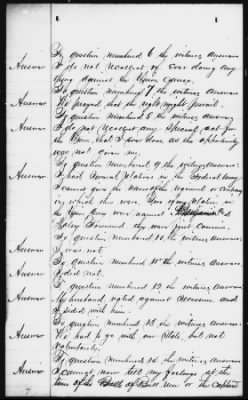 To question numbered 6 the witness answers
Answer I do not recollect of ever doing any
thing against the Union cause.
To question numbered 7 the witness answers
Answer We prayed that the right might prevail.
To question numbered 8 the witness answers
Answer I do not recollect any special act for
the Union, that I have done as the opportunity
was not given me.
To question numbered 9 the witness answers
Answer I had several relatives in the Federal Army
I cannot give the name of the regiment or company
in which they were. Two of my relatives in
the Union Army were named Benjamin &
Townsend they were just cousins.
To question numbered 10, the witness answers
Answer I was not.
To question numbered 11th the witness answers
Answer I did not.
To question numbered 12, the witness answers
Answer My husband voted against secession and
I sided with him.
To question numbered 13 the witness answers
Answer We had to go with our State, but not
voluntarily.
To question numbered 14 the witness answers
Answer I cannot now tell my feelings at the
time of the Battle of Bull Run or the capture
7